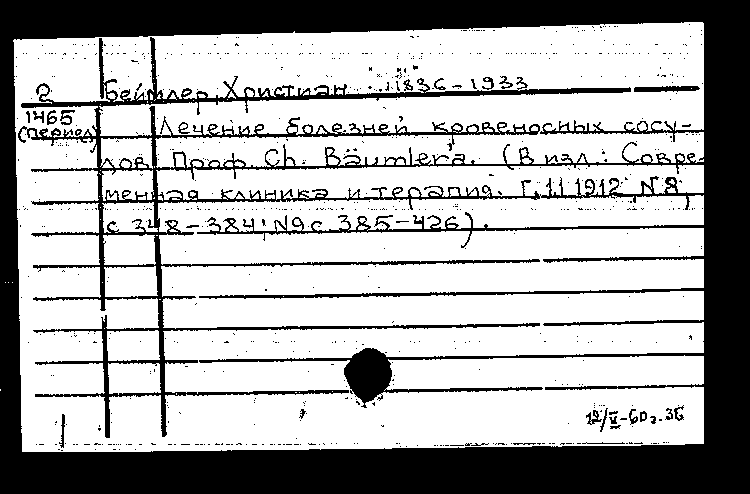 2 Беймлер, Христиан 1836-1933
1465
(период) Лечение болезней кровеносных сосу-
дов Проф. Ch. Bäumler'a. (В изд.: Совре-
менная клиника и терапия. Г. 11 1912, N 8,
с 348-384; N9 с. 385-426).
12/V-60г. ЗБ